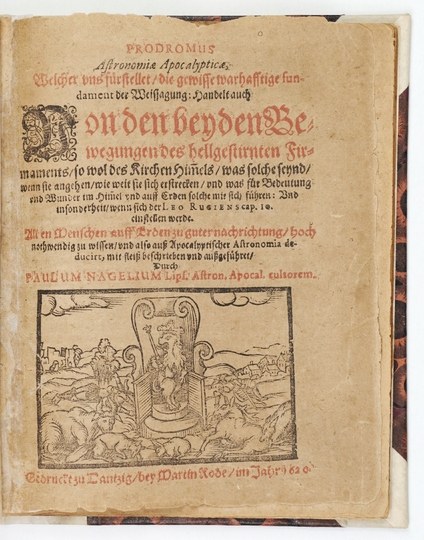 PRODROMUS
Astronomiæ Apocalypticæ,
Welcher vns fürstellet / die gewisse warhafftige fun-
dament der Weissagung: Handelt auch
Von den beyden Be-
wegungen des hellgestirnten Fir-
maments / so wol des Kirchen Him̃els / was solche seynd /
wenn sie angehen / wie weit sie sich erstrecken / vnd was für Bedeutung
vnd Wunder im Him̃el vnd auff Erden solche mit sich führen: Vnd
insonderheit / wenn sich der LEO RUGIENS cap. 10.
einstellen werde.
Allen Menschen auff Erden zu guter nachrichtung / hoch
nothwendig zu wissen / vnd also auß Apocalyptischer Astronomia de-
duciret, mit fleiß beschrieben vnd außgeführet /
Durch
PAULUM NAGELIUM Lips. Astron. Apocal. cultorem.
Gedruckt zu Dantzig / bey Martin Rode / im Jahr 1620.